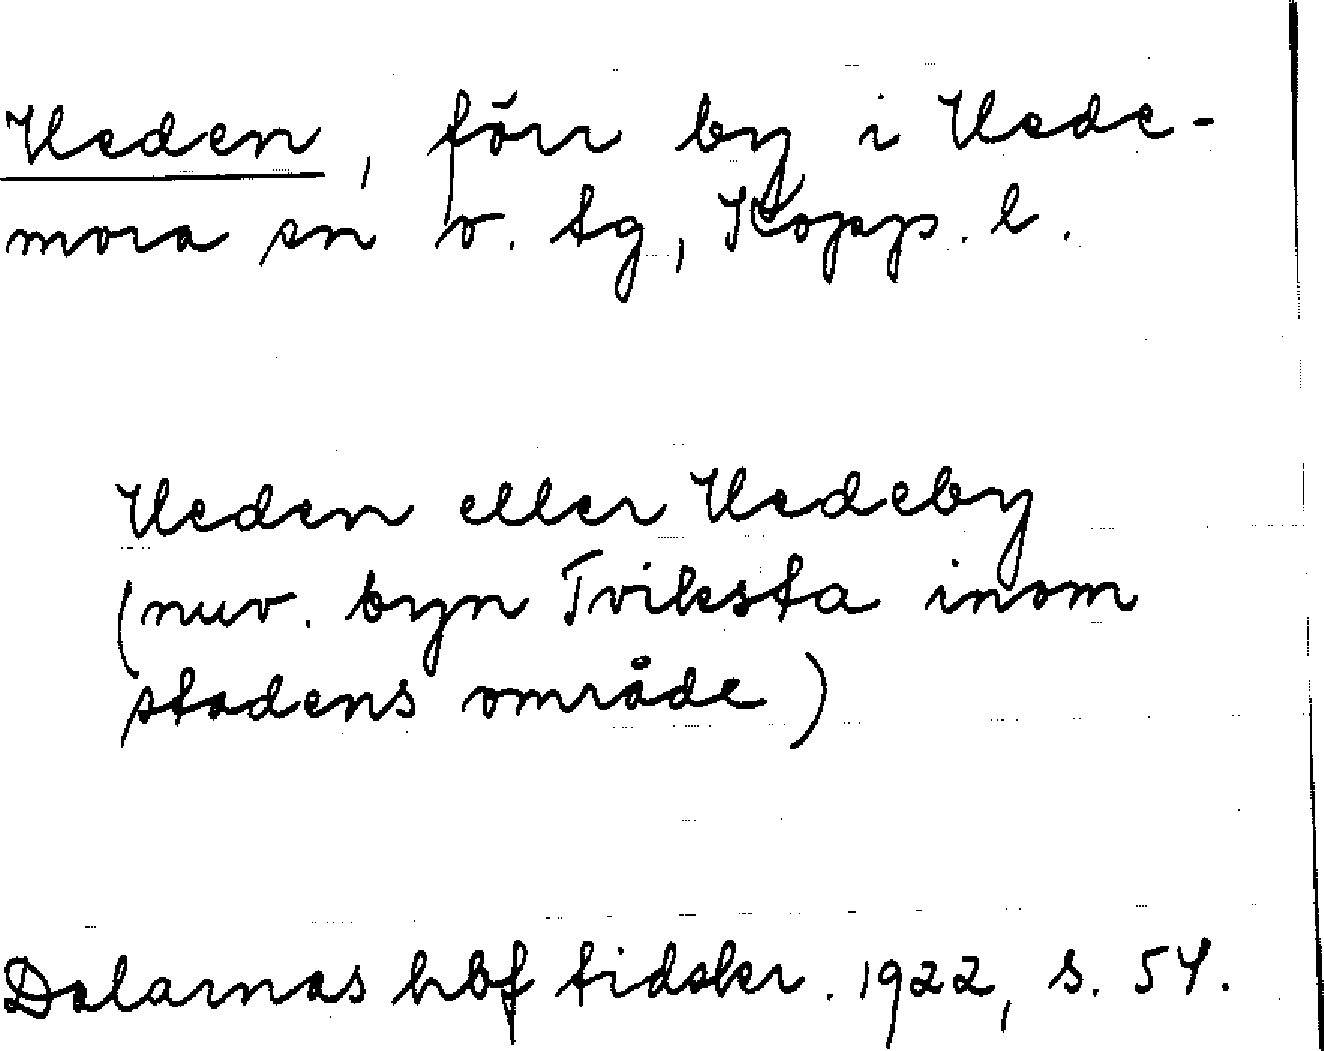 Heden, förr by i Hede-
mora sn o. tg, Kopp. l.
Heden eller Hedeby
(nuv. byn Tviksta inom
stadens område)
Dalarnas hbf tidskr. 1922, s. 54.